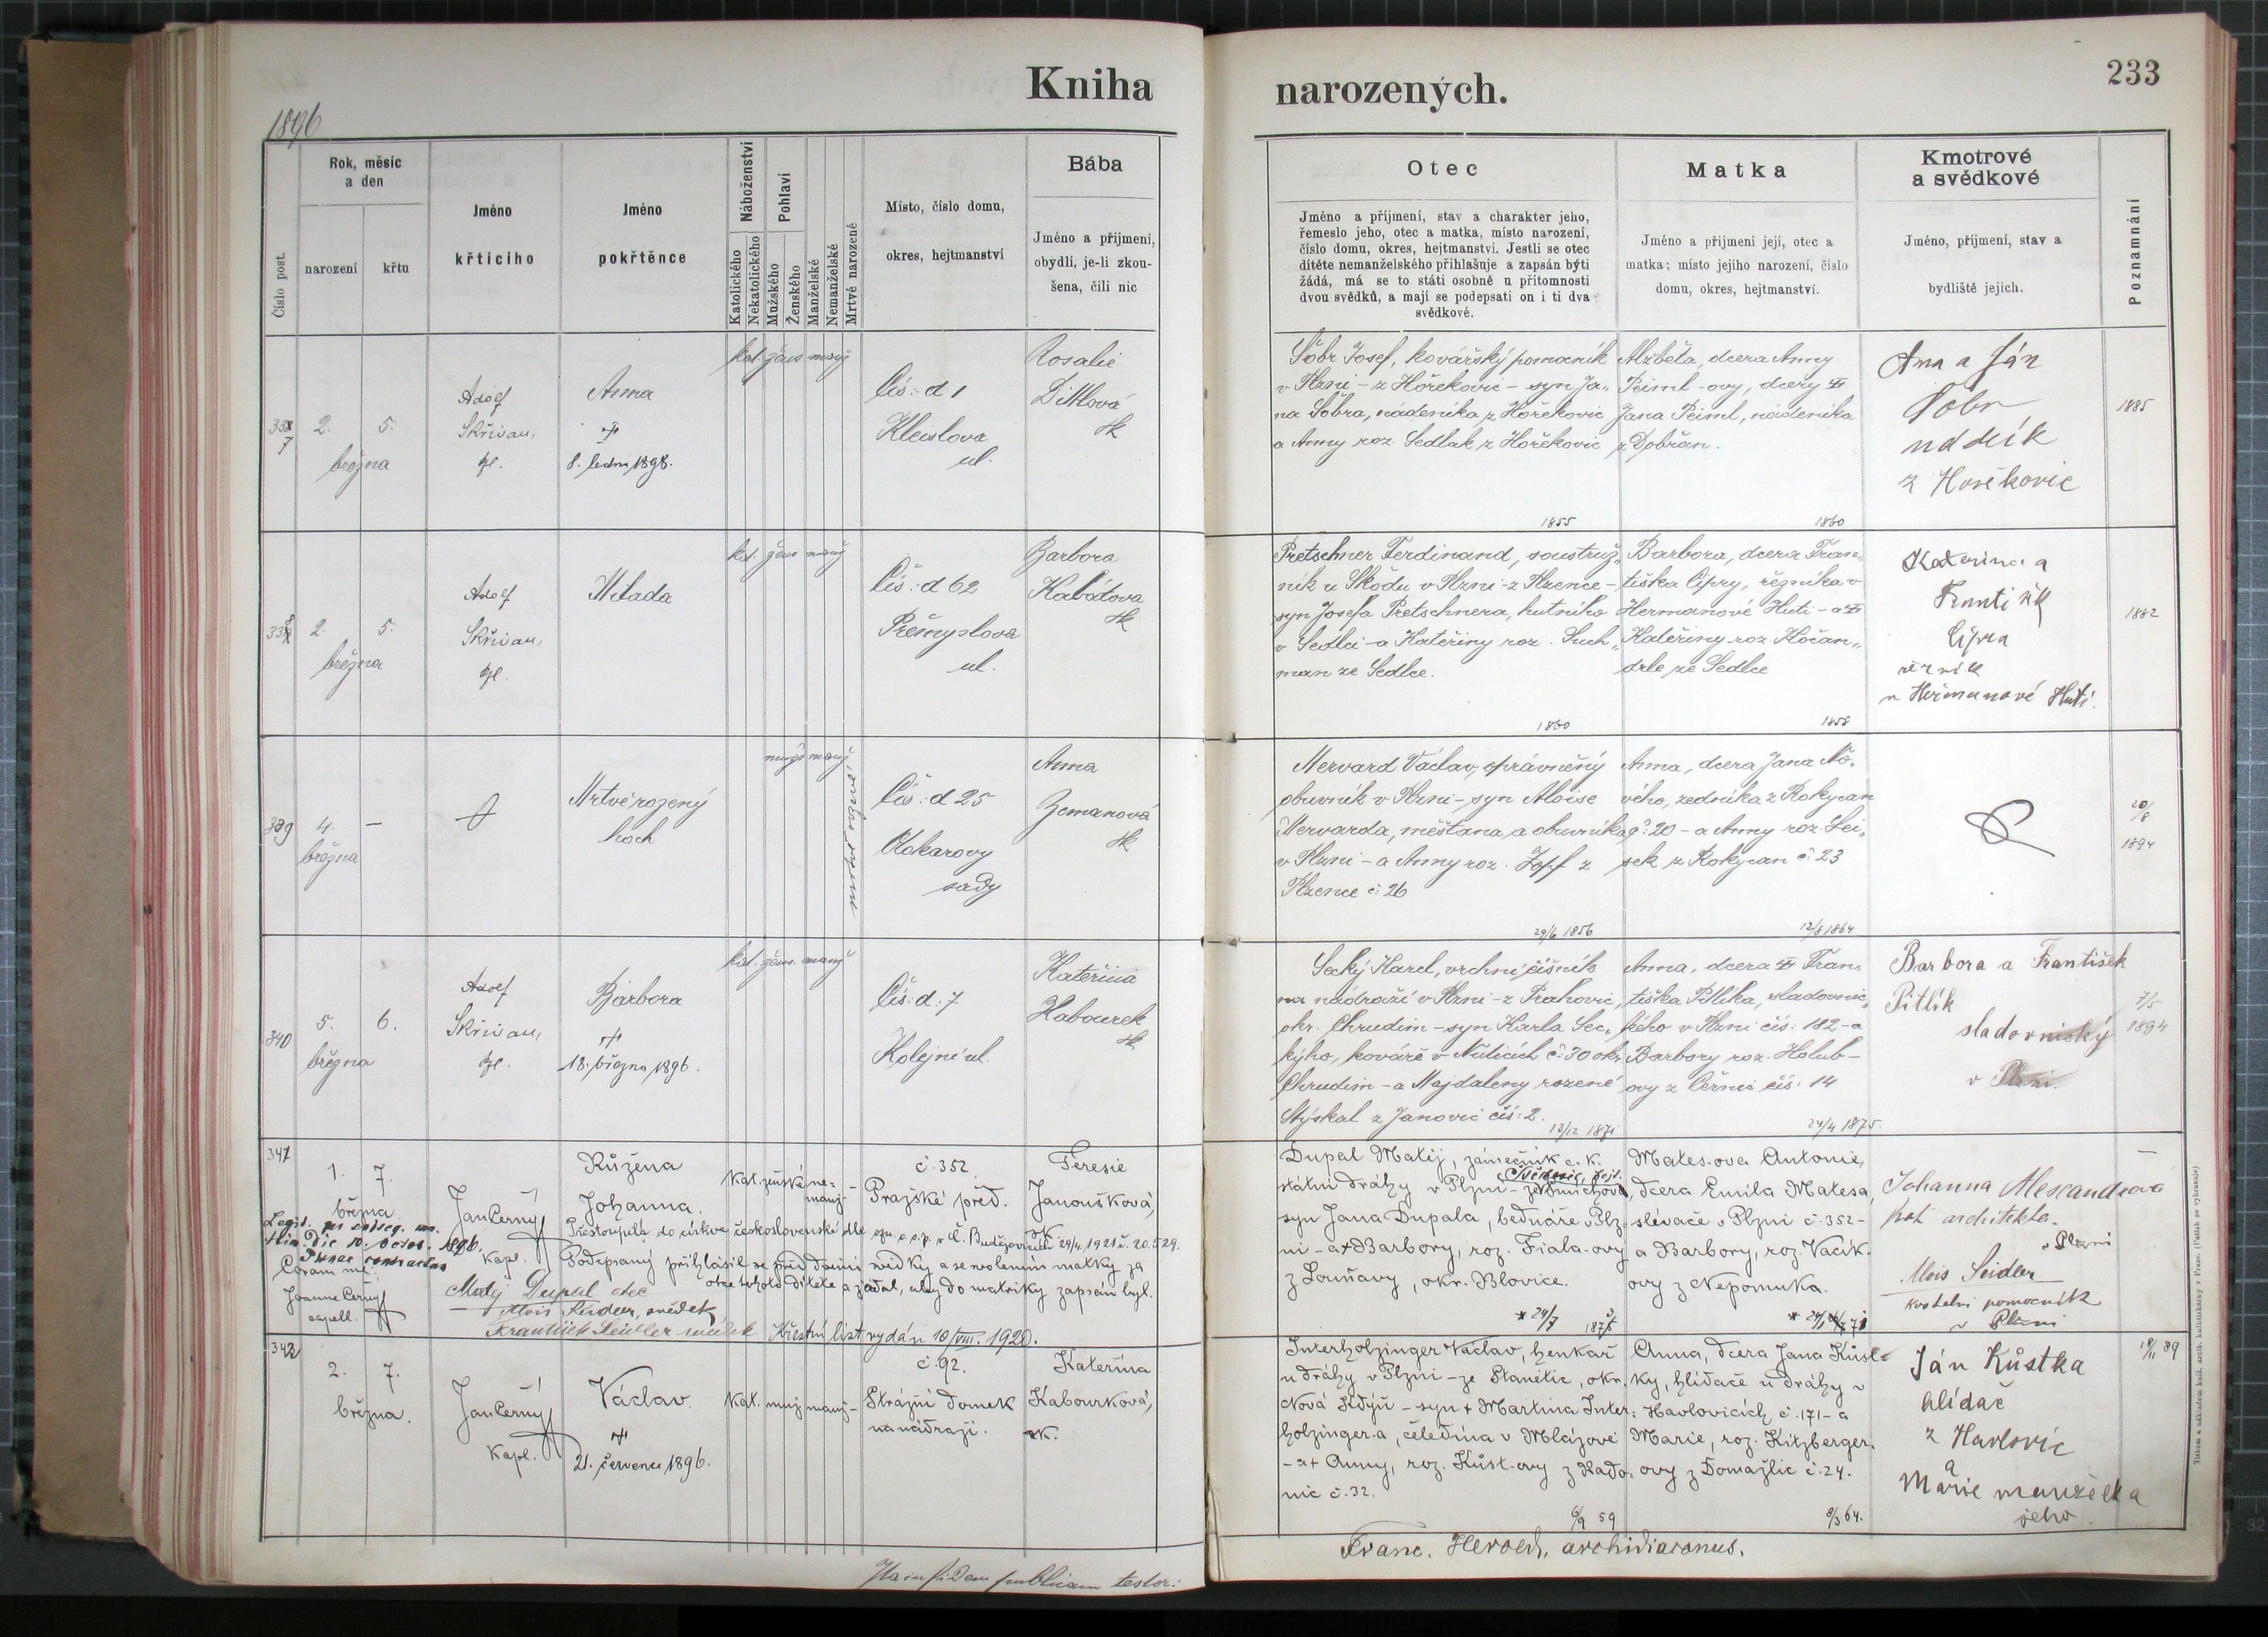 Kniha
narozených.
233
1896
Číslo post.
Rok, měsíc
a den
narození
křtu
Jméno
křtícího
Jméno
pokřtěnce
Náboženství
Katolického
Nekatolického
Pohlaví
Mužského
Ženského
Manželské
Nemanželské
Mrtvě narozené
Místo, číslo domu,
okres, hejtmanství
Bába
Jméno a příjmení,
obydlí, je-li zkou-
šena, čili nic
Otec
Jméno a příjmení, stav a charakter jeho,
řemeslo jeho, otec a matka, místo narození,
číslo domu, okres, hejtmanství. Jestli se otec
dítěte nemanželského přihlašuje a zapsán býti
žádá, má se to státi osobně u přítomnosti
dvou svědků, a mají se podepsati on i ti dva
svědkové.
Matka
Jméno a příjmení její, otec a
matka; místo jejího narození, číslo
domu, okres, hejtmanství.
Kmotrové
a svědkové
Jméno, příjmení, stav a
bydliště jejich.
Poznamnání
2. 5.
března
Adolf
Skřivan,
Anna
8. ledna 1898.
kat. žens. manž
Čís: d 1
Kleislova
ul.
Rosalie
Dittlová
Šobr Josef, kovářský pomocník
v Plzni - z Hořekovic - syn Ja„
na Šobra, nádeníka z Hořekovic
a Anny roz. Sedlak z Hořekovic
1855
Alžběta, dcera Anny
Peiml-ovy, dcery
Jana Peiml, nádeníka
z Dobřan.
1860
Anna a Ján
Šobr
z Hořekovic
1885
338
2. 5.
března
Adolf
Skřivan,
Milada
kat. žens manž
Čís: d 62
Přemyslova
ul.
Barbora
Kabátova
Pretschner Ferdinand, soustruž„
ník u Škodu v Plzni - z Plzence -
syn Josefa Pretschnera, hutního
v Sedlci - a Kateřiny roz. Such„
man ze Sedlce.
1860
Barbora, dcera Fran„
tiška Cipry, řezníka v
Hermanové Huti - a
Kateřiny roz Kočan„
drle ze Sedlce
1858
Katerina a
Františk
Cipra
řezník
v Heřmanové Huti.
1882
339
4. —
března
Mrtvě rozený
hoch
muž manž
mrtvě rozené
Čís: d 25
Klokarovy
sady
Anna
Zemanová
Mervard Václav, oprávněný
obuvník v Plzni - syn Aloise
Mervarda, měšťana a obuvníka
v Plzni - a Anny roz. Zopf z
Plzence č: 26
29/6 1856
Anna, dcera Jana No„
vého, zedníka z Rokycan
č: 20 - a Anny roz. Lei„
sek z Rokycan č: 23
12/8 1864
20/8
1894
340
5. 6.
března
Adolf
Skřivan,
Barbora
18. března 1896.
kat. žens. manž
Čís: d: 7
Kolejní ul.
Kateřina
Kabourek
Secký Karel, vrchní číšník
na nádraží v Plzni - z Prahovic,
okr. Chrudim - syn Karla Sec„
kýho, kováře v Nuticích č: 30 okr.
Chrudim - a Majdaleny rozené
Stýskal z Janovic čís: 2.
13/12 1871
Anna, dcera Fran„
tiška Pitlíka, sladovnic„
kého v Plzni čís: 182 - a
Barbory roz. Holub-
ovy z Černic čís: 14
24/4 1875.
Barbora a František
Pitlík
sladovnický
v Plzni.
7/5
1894
341
1. 7.
března
Jan Černý
kapl.
Růžena
Johanna.
kat. ženské ne-
manž-
č. 352
Pražské před.
Teresie
Janoušková,
Přestoupila do církve československé dle ozn. o. s. p. v Č. Budějovicích 29/4. 1921 č. 20.529.
Podepsaný přihlásil se před dvěma svědky a se svolením matky za
otce tohoto dítěte a žádal, aby do matriky zapsán byl.
Matěj Dupal otec
Alois Seidler, svědek
František Seidler svědek
Křestní list vydán 10/VIII. 1920.
Coram me:
Joanne Černý
capell.
Dupal Matěj, zámečník c. k.
státní dráhy v Plzni - ze Smíchova,
syn Jana Dupala, bednáře v Plz-
ni - a + Barbory, roz. Fiala-ovy
z Louňavy, okr. Blovice.
Mates-ova Antonie,
dcera Emila Matesa,
slévače v Plzni č. 352 -
a Barbory, roz. Vacík-
ovy z Nepomuka.
Johanna Alessandrová
chot architekta.
v Plzni
Alois Seidler
kostelní pomocník
v Plzni
342
2. 7.
března.
Jan Černý
kapl.
Václav.
21. července 1896.
kat. muž manž-
č. 92.
Strážní domek
na nádraží.
Kateřina
Kabourková,
zk.
Interholzinger Václav, henkař
u dráhy v Plzni - ze Stanětic, okr.
Nová Kdýň - syn + Martina Inter:
holzinger-a, čeledína v Mlázové
- a + Anny, roz. Kůst-ovy z Rado:
nic č. 32.
6/9 59
Anna, dcera Jana Kůst-
ky, hlídače u dráhy v
Havlovicích č. 171 - a
Marie, roz. Kitzberger-
ovy z Domažlic č. 24.
8/3 64.
Ján Kůstka
hlídač
z Havlovic
a
Marie manželka
jeho.
18/11 89
Ita in fidem publicam testor:
Franc. Herold, archidiaconus.